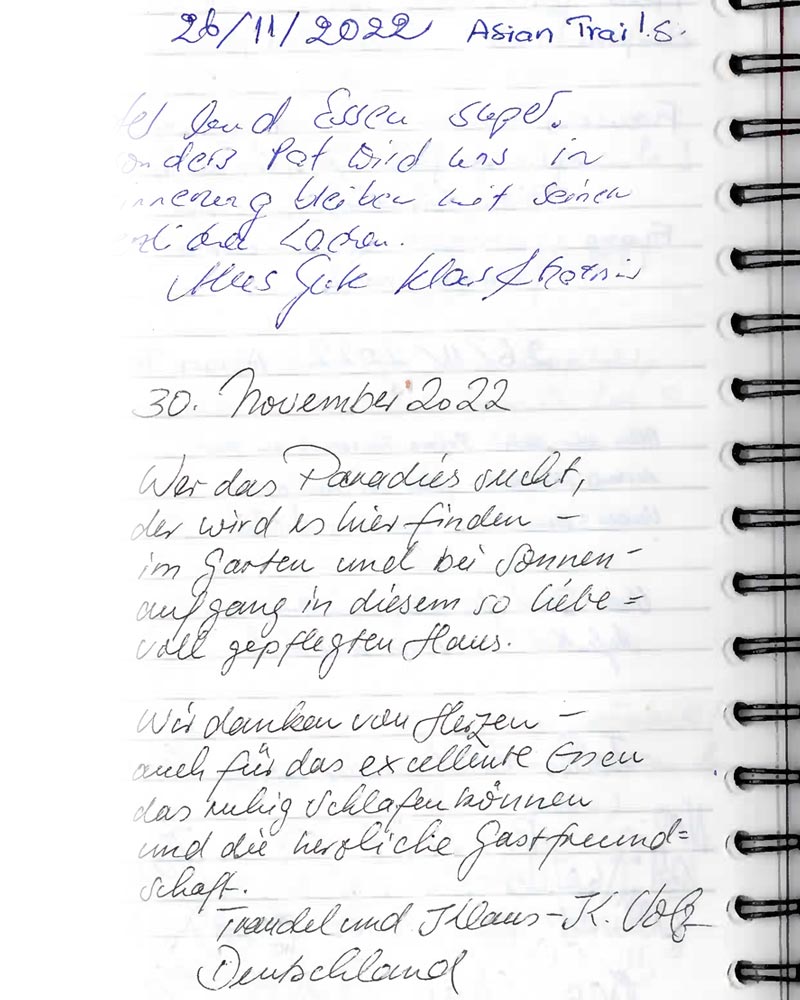 26/11/2022 Asian Trails.
und Essen super.
Pat wird uns in
bleiben mit seinen
Lachen.
Alles Gute Klaus &
30. November 2022
Wer das Paradies sucht,
der wird es hier finden –
im Garten und bei Sonnen-
aufgang in diesem so liebe=
voll gepflegten Haus.
Wir danken von Herzen –
auch für das excellente Essen
das ruhig schlafen können
und die herzliche Gastfreund=
schaft.
Traudel und Klaus-K. Volz
Deutschland